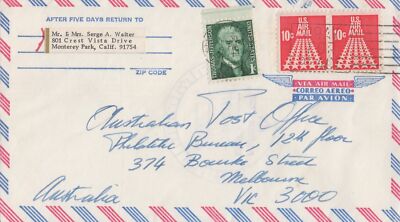 AFTER FIVE DAYS RETURN TO
Mr. & Mrs. Serge A. Walter
801 Crest Vista Drive
Monterey Park, Calif. 91754
ZIP CODE
U.S.
AIR
MAIL
10c
U.S.
AIR
MAIL
10c
VIA AIR MAIL
CORREO AEREO
PAR AVION
Australian Post Office
Philatelic Bureau, 12th floor
374 Bourke Street
Melbourne
Vic 3000
Australia